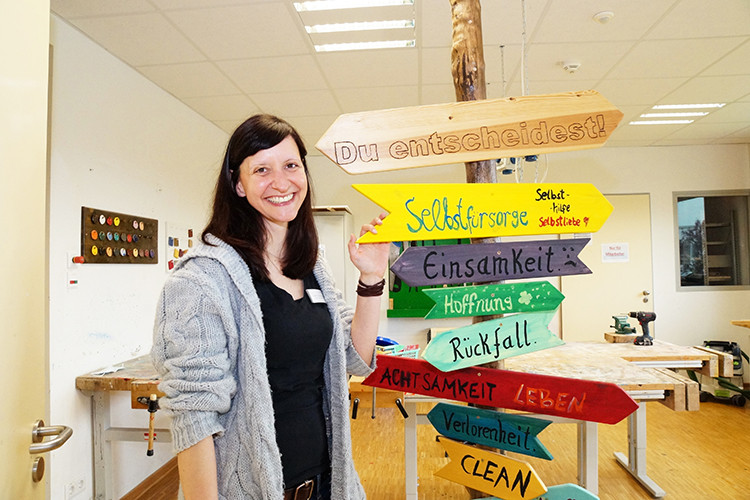 Du entscheidest!
Selbstfürsorge
Selbst-
hilfe
Selbstliebe
Einsamkeit
Hoffnung
Rückfall.
ACHTSAMKEIT LEBEN
Verlorenheit.
CLEAN